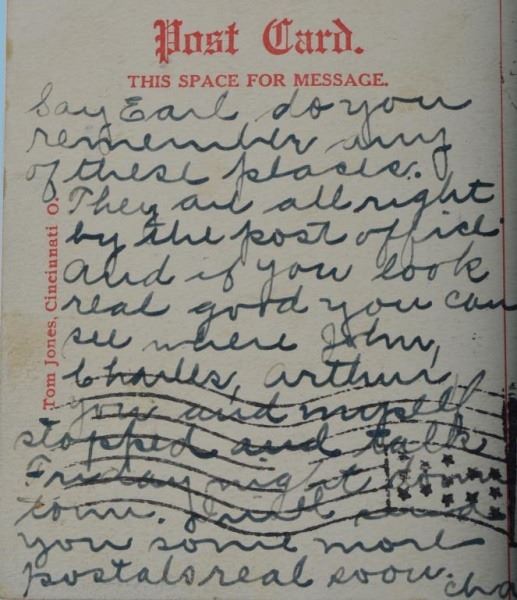 Post Card.
THIS SPACE FOR MESSAGE.
Say Earl do you
remember any
of these places.
They are all right
by the post office
and if you look
real good you can
see where John,
Charles, Arthur,
you and myself
stopped and talk
Friday night down
town. I will send
you some more
postals real soon.
Tom Jones, Cincinnati O.